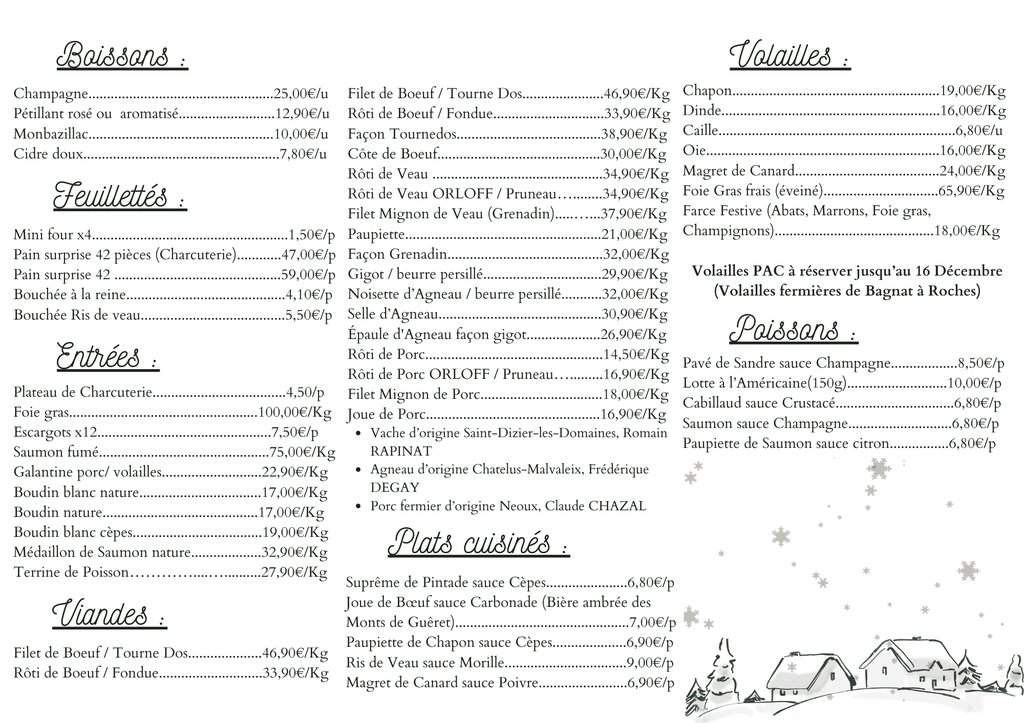 Boissons :
Champagne..................................................25,00€/u
Pétillant rosé ou aromatisé..........................12,90€/u
Monbazillac..................................................10,00€/u
Cidre doux.....................................................7,80€/u
Feuillettés :
Mini four x4.....................................................1,50€/p
Pain surprise 42 pièces (Charcuterie)............47,00€/p
Pain surprise 42 .............................................59,00€/p
Bouchée à la reine...........................................4,10€/p
Bouchée Ris de veau.......................................5,50€/p
Entrées :
Plateau de Charcuterie....................................4,50/p
Foie gras...................................................100,00€/Kg
Escargots x12...............................................7,50€/p
Saumon fumé..............................................75,00€/Kg
Galantine porc/ volailles...........................22,90€/Kg
Boudin blanc nature.................................17,00€/Kg
Boudin nature..........................................17,00€/Kg
Boudin blanc cèpes...................................19,00€/Kg
Médaillon de Saumon nature...................32,90€/Kg
Terrine de Poisson…………...…..........27,90€/Kg
Viandes :
Filet de Boeuf / Tourne Dos....................46,90€/Kg
Rôti de Boeuf / Fondue............................33,90€/Kg
Filet de Boeuf / Tourne Dos......................46,90€/Kg
Rôti de Boeuf / Fondue..............................33,90€/Kg
Façon Tournedos.......................................38,90€/Kg
Côte de Boeuf............................................30,00€/Kg
Rôti de Veau ..............................................34,90€/Kg
Rôti de Veau ORLOFF / Pruneau…........34,90€/Kg
Filet Mignon de Veau (Grenadin)....…...37,90€/Kg
Paupiette.....................................................21,00€/Kg
Façon Grenadin..........................................32,00€/Kg
Gigot / beurre persillé................................29,90€/Kg
Noisette d’Agneau / beurre persillé...........32,00€/Kg
Selle d’Agneau............................................30,90€/Kg
Épaule d'Agneau façon gigot....................26,90€/Kg
Rôti de Porc................................................14,50€/Kg
Rôti de Porc ORLOFF / Pruneau….........16,90€/Kg
Filet Mignon de Porc.................................18,00€/Kg
Joue de Porc...............................................16,90€/Kg
• Vache d’origine Saint-Dizier-les-Domaines, Romain
RAPINAT
• Agneau d’origine Chatelus-Malvaleix, Frédérique
DEGAY
• Porc fermier d’origine Neoux, Claude CHAZAL
Plats cuisinés :
Suprême de Pintade sauce Cèpes......................6,80€/p
Joue de Bœuf sauce Carbonade (Bière ambrée des
Monts de Guéret)...............................................7,00€/p
Paupiette de Chapon sauce Cèpes....................6,90€/p
Ris de Veau sauce Morille.................................9,00€/p
Magret de Canard sauce Poivre........................6,90€/p
Volailles :
Chapon........................................................19,00€/Kg
Dinde...........................................................16,00€/Kg
Caille................................................................6,80€/u
Oie...............................................................16,00€/Kg
Magret de Canard.......................................24,00€/Kg
Foie Gras frais (éveiné)...............................65,90€/Kg
Farce Festive (Abats, Marrons, Foie gras,
Champignons)...........................................18,00€/Kg
Volailles PAC à réserver jusqu’au 16 Décembre
(Volailles fermières de Bagnat à Roches)
Poissons :
Pavé de Sandre sauce Champagne..................8,50€/p
Lotte à l’Américaine(150g)...........................10,00€/p
Cabillaud sauce Crustacé................................6,80€/p
Saumon sauce Champagne............................6,80€/p
Paupiette de Saumon sauce citron................6,80€/p